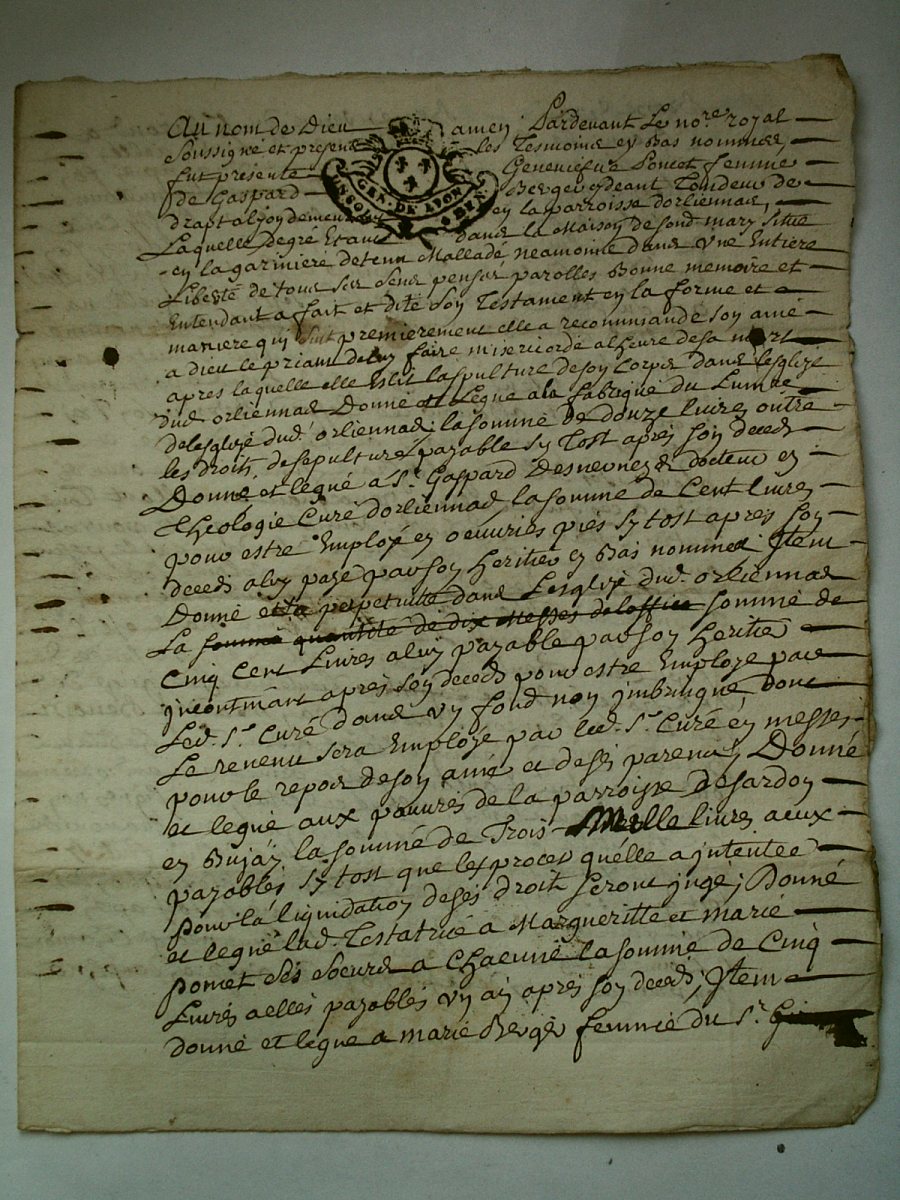 Au nom de Dieu amen Pardevant Le no.re royal
soussigné et presens les Tesmoins en bas nommes
fut presente Geneviefve Poncet femme
de Gaspard Berger vivant Tondeur de
drapt a lyon demeurant en la parroisse dorliennas,
Laquelle de gré Etant dans la Maison de sond. mary sittue
en la gariniere detenu Malladé neamoins dans une Entiere
Liberté de tous ses sens penses parolles bonne memoire et
Entendant a fait et dité son Testament en la forme et
maniere qui suit premierement elle a recommandé son amé
a dieu le priant de luy faire misericorde a lheure de sa mort
apres laquelle elle Eslit la spulture de son Corps dans lesglize
dud. orliennas Donné et Legué a la fabrique du Lumre
de lesglizé dud. orliennas la sommé de douze livres outre
les droits de sepulture payable sy Tost apres son deceds
Donné et legué a S.r Gaspard Desnevnes docteur en
Theologie Curé dorliennas la sommé de Cent livres
pour estre Employé en oeuvries piés sy tost apres son
deceds a luy payé par son heritier en bas nommé Item
Donné et a perpetuité dans Lesglizé dud. orliennas
La somme quantité de dix Messes de loffice sommé de
Cinq Cent Livres a luy payable par son heritie
incontinant apres son deceds pour estre Employé par
Led. S.r Curé dans un fond non imbringué dont
Le revenu sera Employé par led. S.r Curé en messes
pour le repos de son amé et de ses parents Donné
et legué aux pauvrés de la parroisse de sardon
en Bujay la sommé de Trois Mille livres a eux
payablés sy tost que les proces quelle a intentee
pour la liquidation de ses droit seront jugé; Donné
et legué lad. Testatricé a Margueritte et marié
poncet ses soeurs a Chacune la sommé de Cinq
Livrés a elles payablés un an apres son deceds; Item
donné et legué a marié Berger femmé du S.r
INSOL GEN. DE LYON 8 DEN.